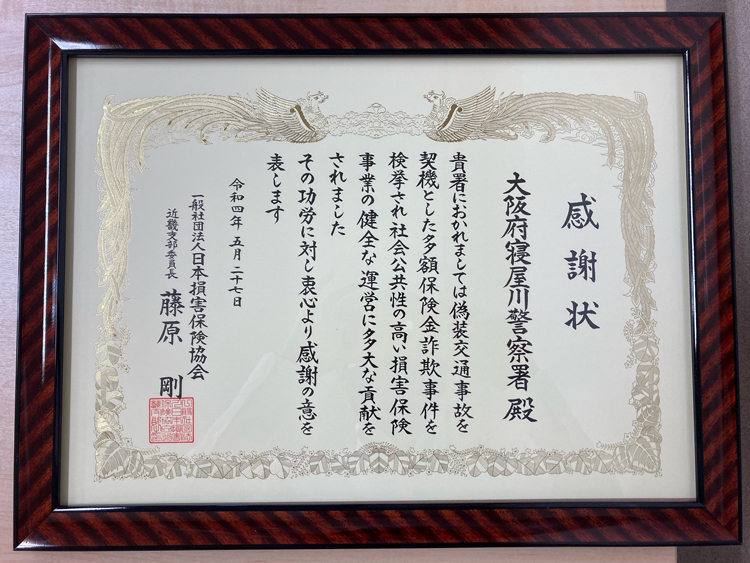 感謝状
大阪府寝屋川警察署 殿
貴署におかれましては偽装交通事故を
契機とした多額保険金詐欺事件を
検挙され社会公共性の高い損害保険
事業の健全な運営に多大な貢献を
されました
その功労に対し衷心より感謝の意を
表します
令和四年五月二十七日
一般社団法人日本損害保険協会
近畿支部委員長 藤原 剛